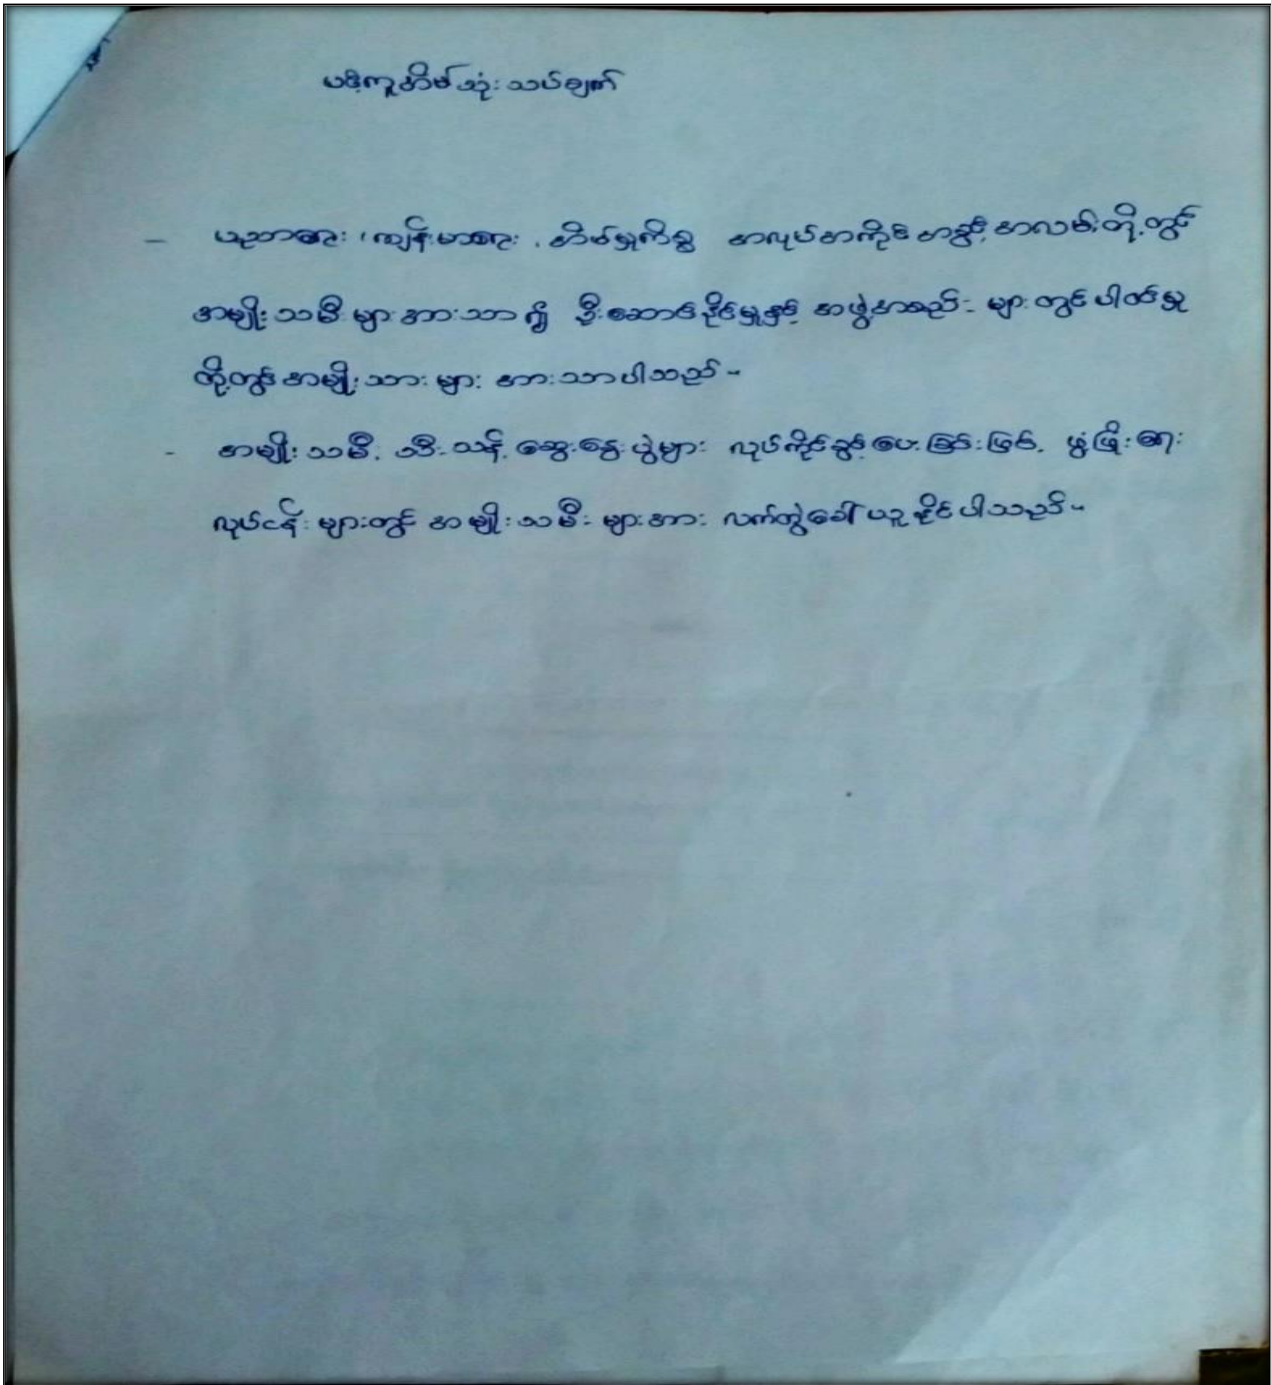 ပဒိုကူအိမ် သုံးသပ်ချက်
- ပညာရေး ၊ ကျန်းမာရေး ၊ အိမ်မှုကိစ္စ အလုပ်အကိုင် အခွင့်အလမ်းတို့တွင်
အမျိုးသမီးများ အားသာ၍ ဦးဆောင်နိုင်မှုနှင့် အဖွဲ့အစည်းများတွင် ပါဝင်မှု
တို့တွင် အမျိုးသားများ အားသာပါသည်။
- အမျိုးသမီး သီးသန့် ဆွေးနွေးပွဲများ လုပ်ကိုင်ခွင့်ပေးခြင်းဖြင့် ဖွံ့ဖြိုးရေး
လုပ်ငန်းများတွင် အမျိုးသမီးများအား လက်တွဲခေါ်ယူနိုင်ပါသည်။